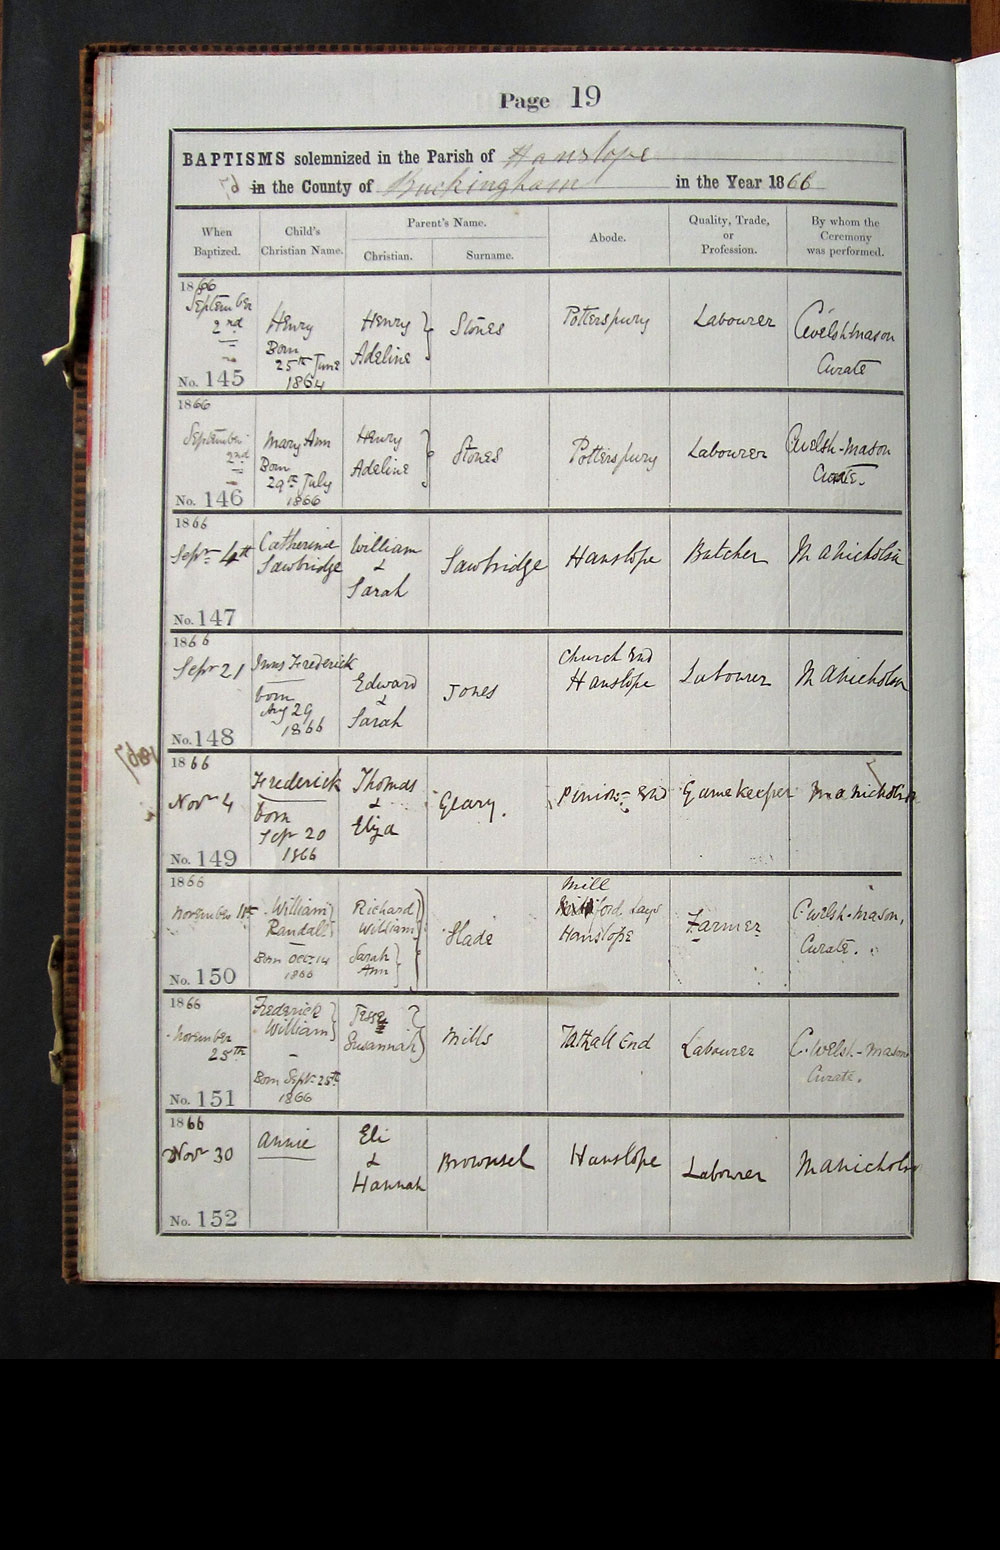 Page 19
BAPTISMS solemnized in the Parish of Hanslope
in the County of Buckingham in the Year 1866
When Baptized.
Child's Christian Name.
Parent's Name.
Christian.
Surname.
Abode.
Quality, Trade, or Profession.
By whom the Ceremony was performed.
1866
September 2nd
No. 145
Henry
Born
25th June
1864
Henry
Adeline
Stones
Potterspury
Labourer
C Welsh Mason
Curate
1866
September 2nd
No. 146
Mary Ann
Born
29th July
1866
Henry
Adeline
Stones
Potterspury
Labourer
C Welsh-Mason
Curate.
1866
Sepr 4th
No. 147
Catherine
Sawbridge
William
&
Sarah
Sawbridge
Hanslope
Butcher
M A Nicholson
1866
Sepr 21
No. 148
Frederick
born
Aug 29
1866
Edward
&
Sarah
Jones
Church End
Hanslope
Labourer
M A Nicholson
1866
Novr 4
No. 149
Frederick
born
Sepr 20
1866
Thomas
&
Eliza
Geary.
Pinion End
Gamekeeper
M A Nicholson
1866
November 11th
No. 150
William
Randall
Born Oct 14
1866
Richard
William
Sarah
Ann
Slade
Mill
Hanslope
Farmer
C Welsh-Mason,
Curate.
1866
November
25th
No. 151
Frederick
William
Born Sept. 25th
1866
Jesse
Susannah
Mills
Tathall End
Labourer
C. Welsh-Mason
Curate.
1866
Novr 30
No. 152
Annie
Eli
&
Hannah
Brownsel
Hanslope
Labourer
M A Nicholson